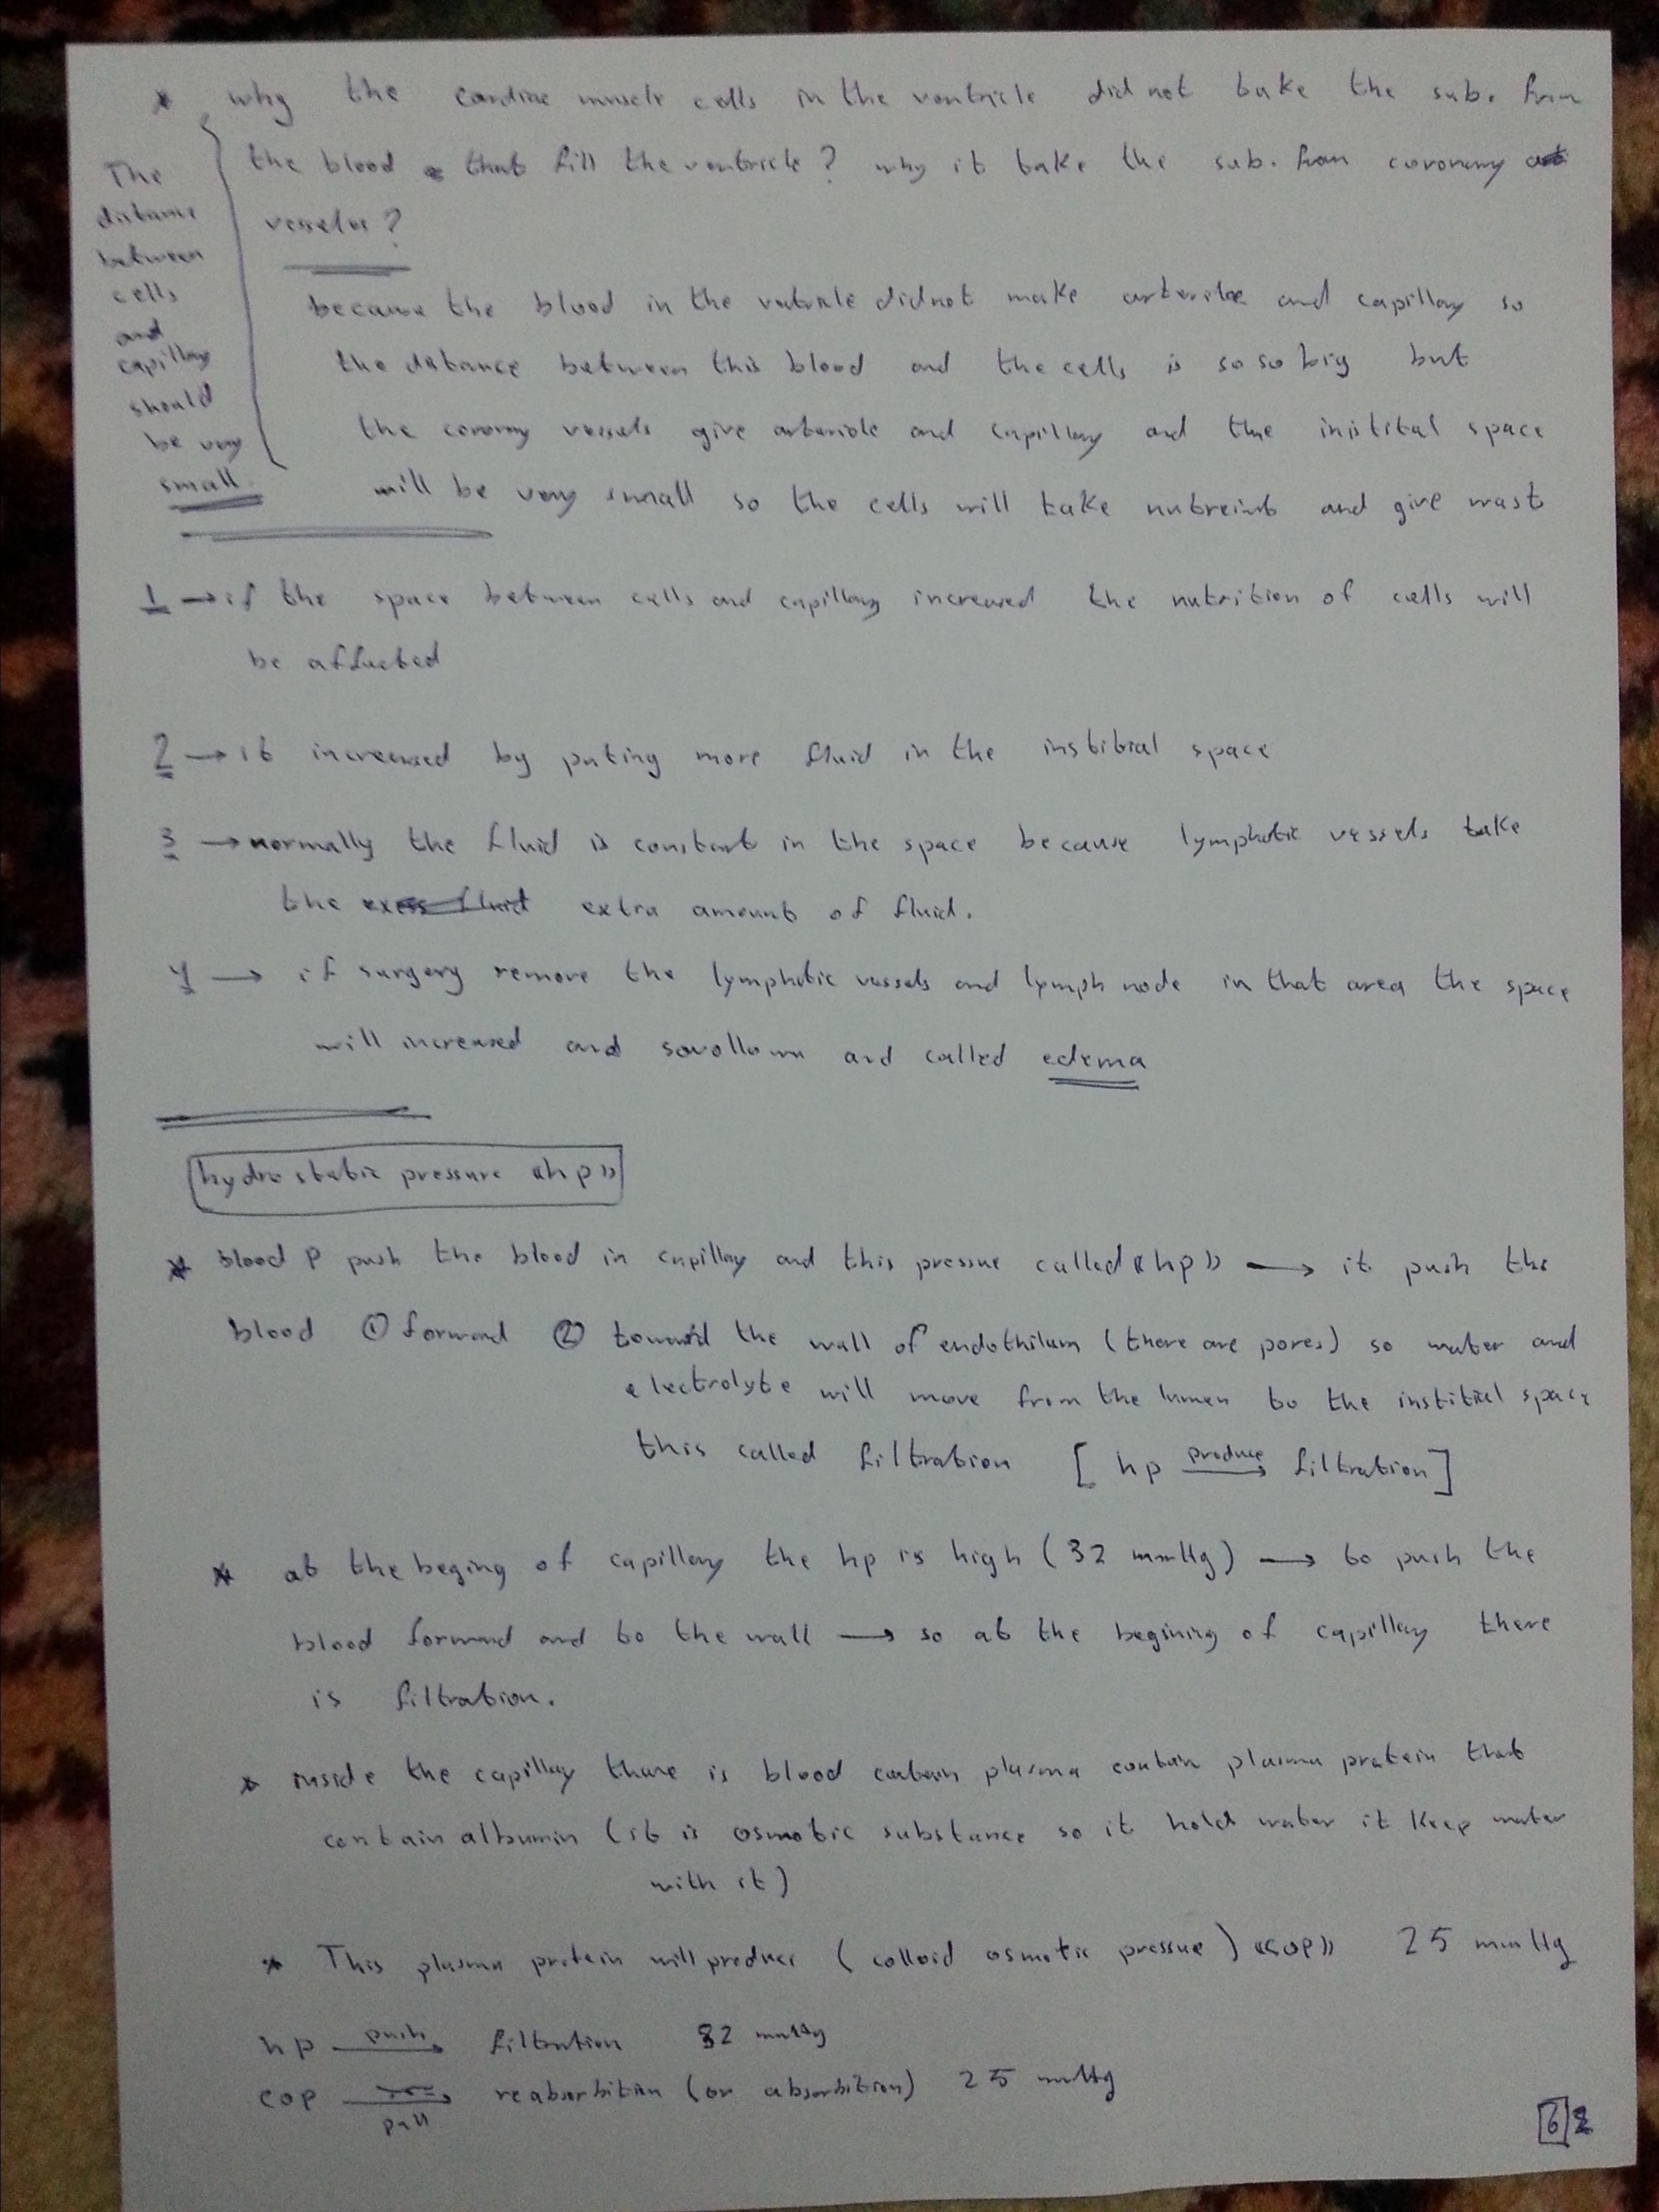 * why the cardiac muscle cells in the ventricle did not take the sub. from
the blood that fill the ventricle? why it take the sub. from coronary
vesseles?
The
distance
between
cells
and
capillary
should
be very
small.
because the blood in the did not make and capillary so
the distance between this blood and the cells is so so big but
the coronary vessels give arteriole and capillary and the space
will be very small so the cells will take and give wast
1 → if the space between cells and capillary increased the nutrition of cells will
be affected
2 → it increased by puting more fluid in the institial space
3 → normally the fluid is constant in the space because lymphatic vessels take
the extra amount of fluid.
4 → if surgery remove the lymphatic vessels and lymph node in that area the space
will increased and and called edema
hydrostatic pressure «hp»
* blood P push the blood in capillary and this pressue called «hp» → it push the
blood ① forward ② toward the wall of endothilum (there are pores) so water and
electrolyte will move from the lumen to the institial space
this called filtration [hp produce → filtration]
* at the beging of capillary the hp is high (32 mmHg) → to push the
blood forward and to the wall → so at the begining of capillary there
is filtration.
* inside the capillay there is blood contain plasma contain plasma protein that
contain albumin (it is osmotic substance so it hold water it keep water
with it)
* This plasma protein will produce (colloid osmotic pressue) «cop» 25 mmHg
hp push → filtration 32 mmHg
cop → pull reabsorbition (or absorbition) 25 mmHg
6